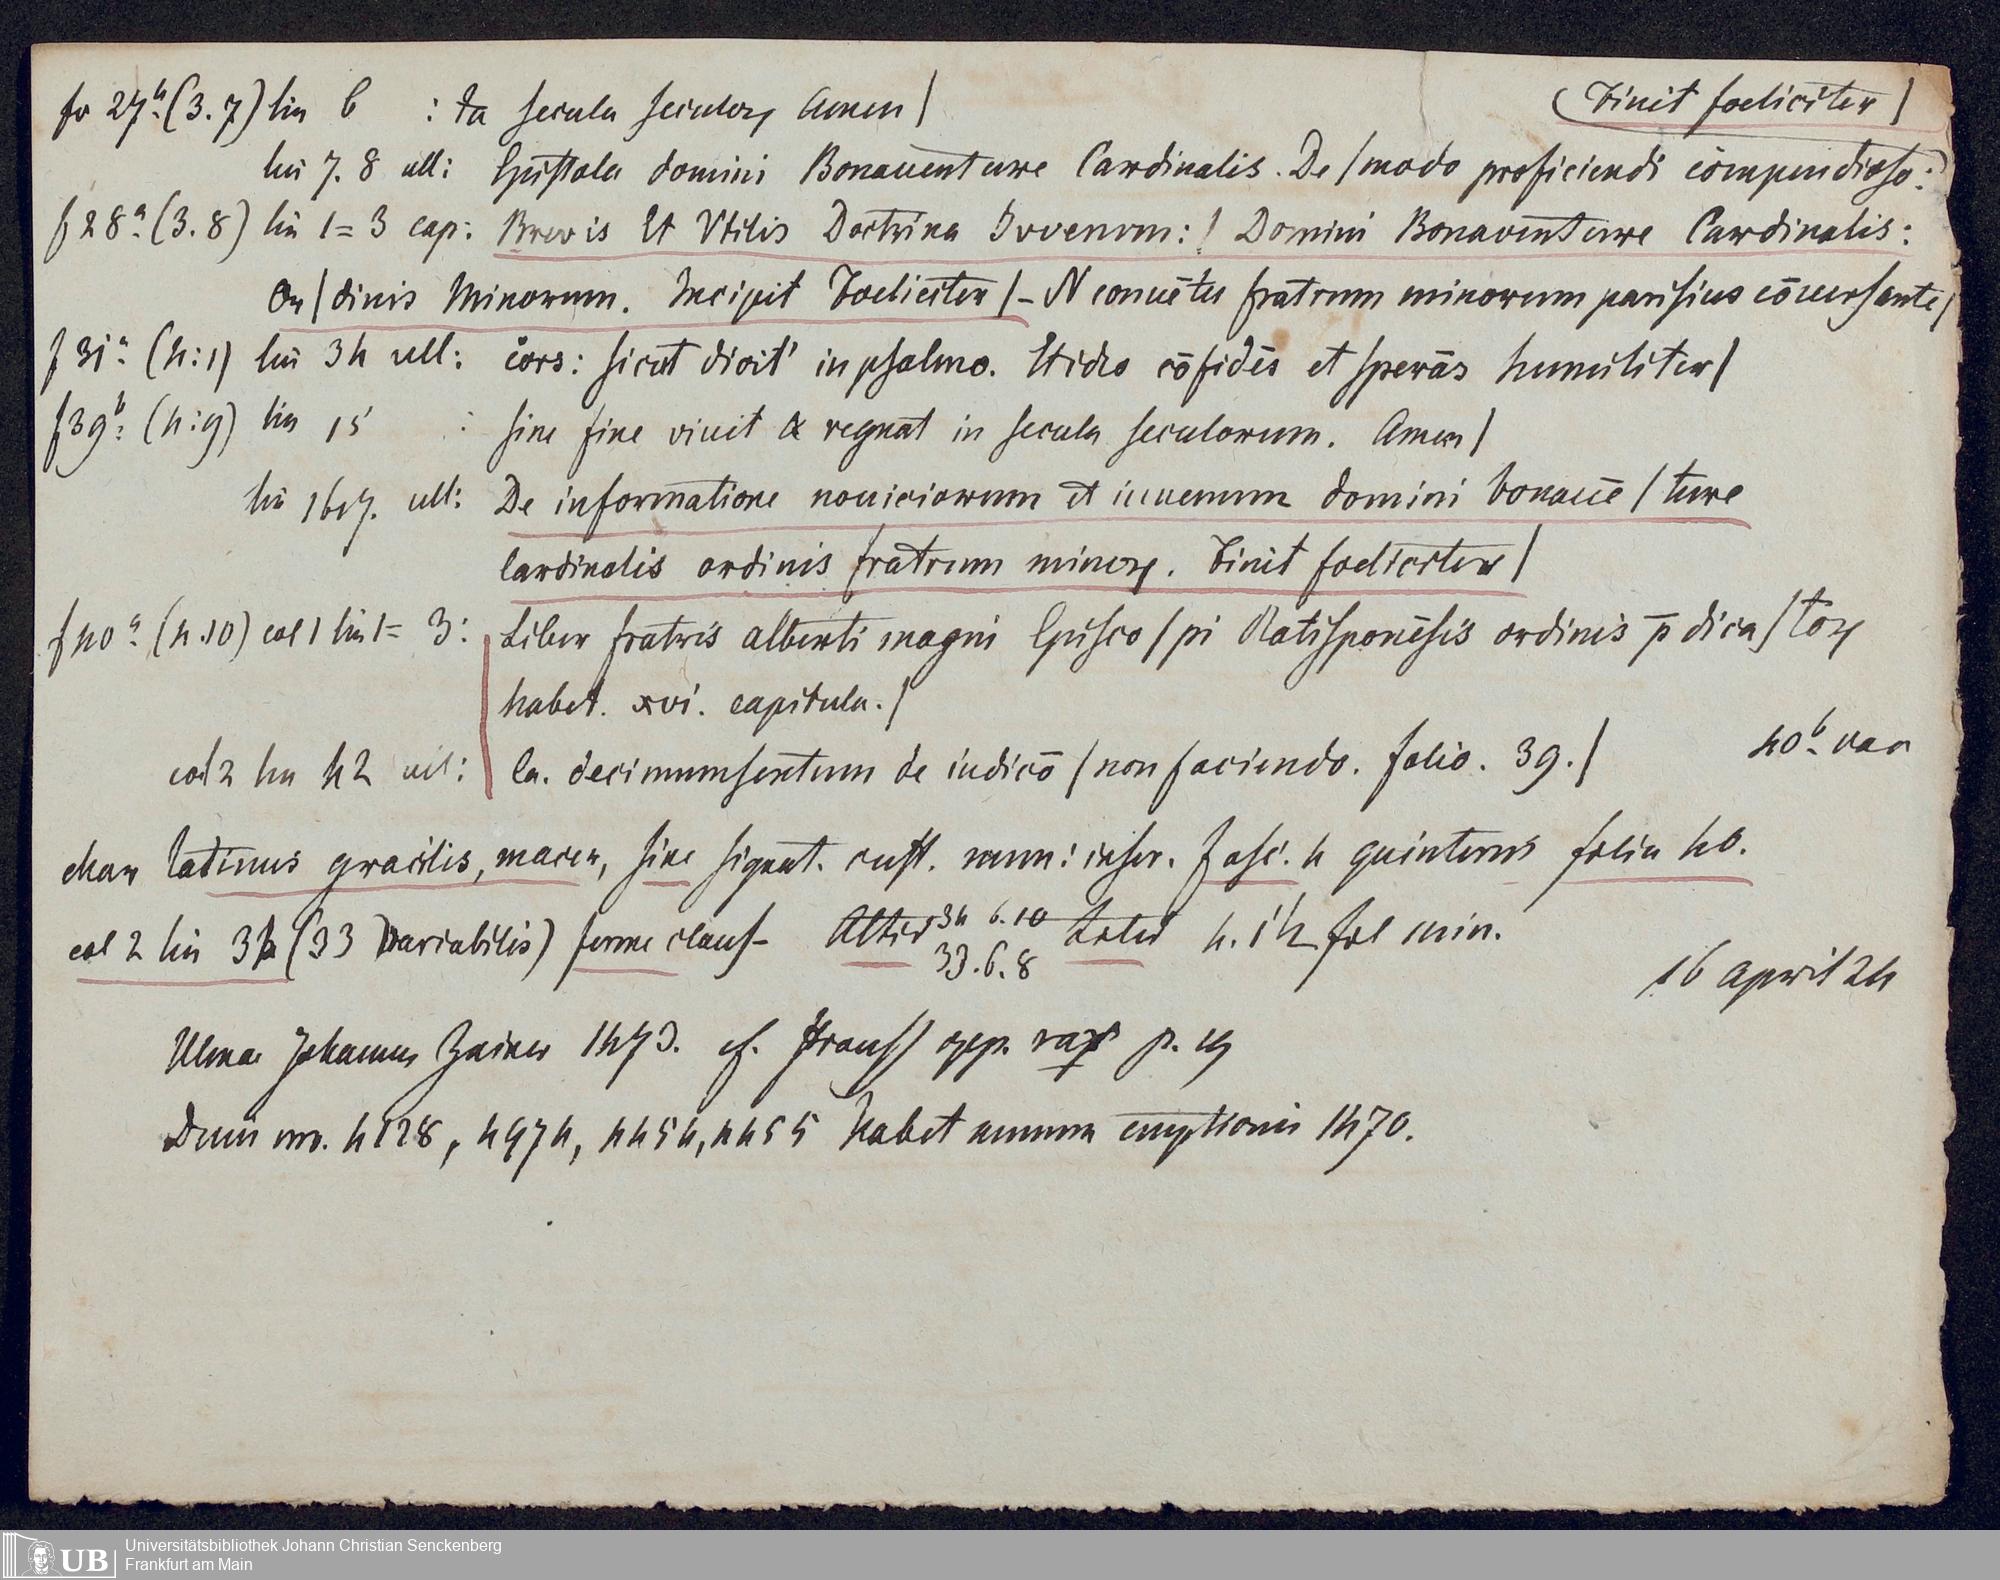 fo 27b. (3.7) lin 6 : ta secula seculorꝝ Amen/ (Finit foeliciter/
lin 7. 8 ult: Epistola domini Bonauenture Cardinalis. De/modo proficiendi compendioso:
f 28a. (3.8) lin 1=3 cap: Brevis Et Vtilis Doctrina Iuvenum:/ Domini Bonaventure Cardinalis:
Or/dinis Minorum. Incipit Foeliciter/- N conuētu fratrum minorum parisius cōuersante/
f 31a. (4:1) lin 34 ult: cors: sicut dicit' in psalmo. Et ideo cōfidēs et sperās humiliter/
f 39b. (4:9) lin 15 : sine fine viuit & regnat in secula seculorum. Amen/
lin 16 17. ult: De informatione nouiciorum et iuuenum domini bonauē/ture
Cardinalis ordinis fratrum minorꝝ. Finit foeliciter/
f 40a. (4.10) col 1 lin 1=3: Liber fratris alberti magni Episco/pi Ratisponēsis ordinis p̄dica/torꝝ
habet. xvi. capitula./
col 2 lin 42 ult: Ca. decimumsextum de iudicō/non faciendo. folio. 39./ 40b. vac
Char latinus gracilis, macer, sine signat. cust. num: inser. Fasc. 4 quinterni folia 40.
col 2 lin 34 (33 variabilis) forme claus- Altid 34 6.10 Latid 4. 1/2 fol min.
33.6.8
16 April 24
Ulmae Johannes Zainer 1473. cf. Strauss opp. rar p. 19
Dum no. 4128, 4974, 4454, 4455 habet annum emptionis 1470.
Universitätsbibliothek Johann Christian Senckenberg
Frankfurt am Main
UB